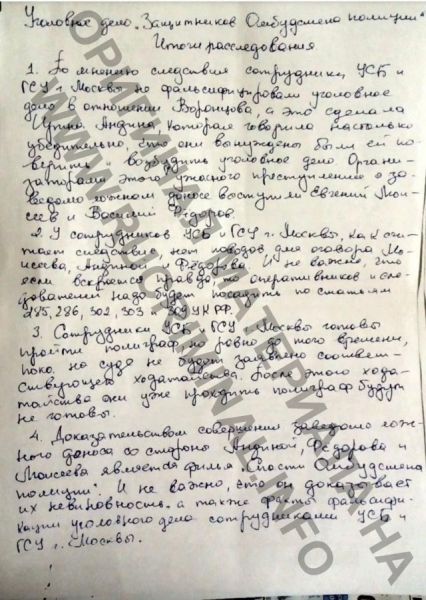 Уголовное дело „Защитников Омбудсмена полиции"
Итоги расследования.
1. По мнению следствия сотрудники УСБ и
ГСУ г. Москвы не фальсифицировали уголовное
дело в отношении Воронцова, а это сделала
Ирина Андина, которая говорила настолько
убедительно, что они вынуждены были ей по-
верить и возбудить уголовное дело. Органи-
заторами этого ужасного преступления о за-
ведомо ложном доносе выступили Евгений Мои-
сеев и Василий Фёдоров.
2. У сотрудников УСБ и ГСУ г. Москвы, как счи-
тает следствие нет поводов для оговора Мо-
исеева, Андиной и Фёдорова. И не важно, что
если вскроется правда, то оперативников и сле-
дователей надо будет посадить по статьям
285, 286, 302, 303 и 307 УК РФ.
3. Сотрудники УСБ и ГСУ г. Москвы готовы
пройти полиграф, но ровно до того времени,
пока на суде не будет заявлено соответ-
ствующее ходатайство. После этого хода-
тайства они уже проходить полиграф будут
не готовы.
4. Доказательством совершения заведомо лож-
ного доноса со стороны Андиной, Фёдорова и
Моисеева является фильм „Спасти Омбудсмена
полиции". И не важно, что он доказывает
их невиновность, а также факты фальсифи-
кации уголовного дела сотрудниками УСБ и
ГСУ г. Москвы.
ОРИГИНАЛ МАТЕРИАЛА НА